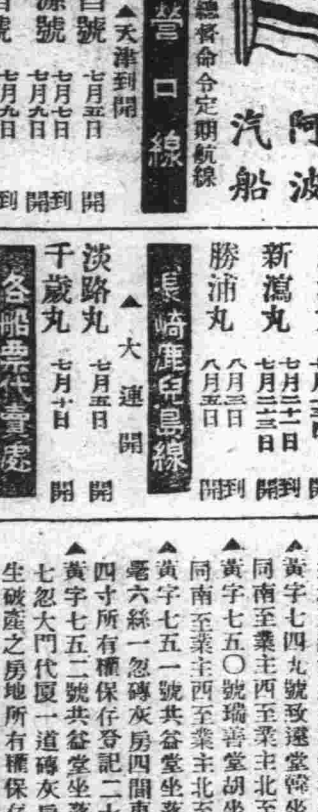 阿波
汽船
總督命令定期航線
營口線
▲天津到開
號 七月五日 開
號 七月七日 到
七月九日 開
號 七月九日 到
新瀉丸 七月二十一日到
七月二十三日開
勝浦丸 八月三日到
八月五日開
長崎鹿兒島線
▲大連開
淡路丸 七月五日 開
千歲丸 七月十日 開
各船票代賣處
▲黃字七四九號致遠堂韓坐
同南至業主西至業主北至
▲黃字七五〇號瑞善堂胡坐
同南至業主西至業主北至
▲黃字七五一號共益堂坐落
毫六絲一忽磚灰房四間東
四寸所有權保存登記二十
▲黃字七五二號共益堂坐落
七忽大門代廈一道磚灰房
生破產之房地所有權保存